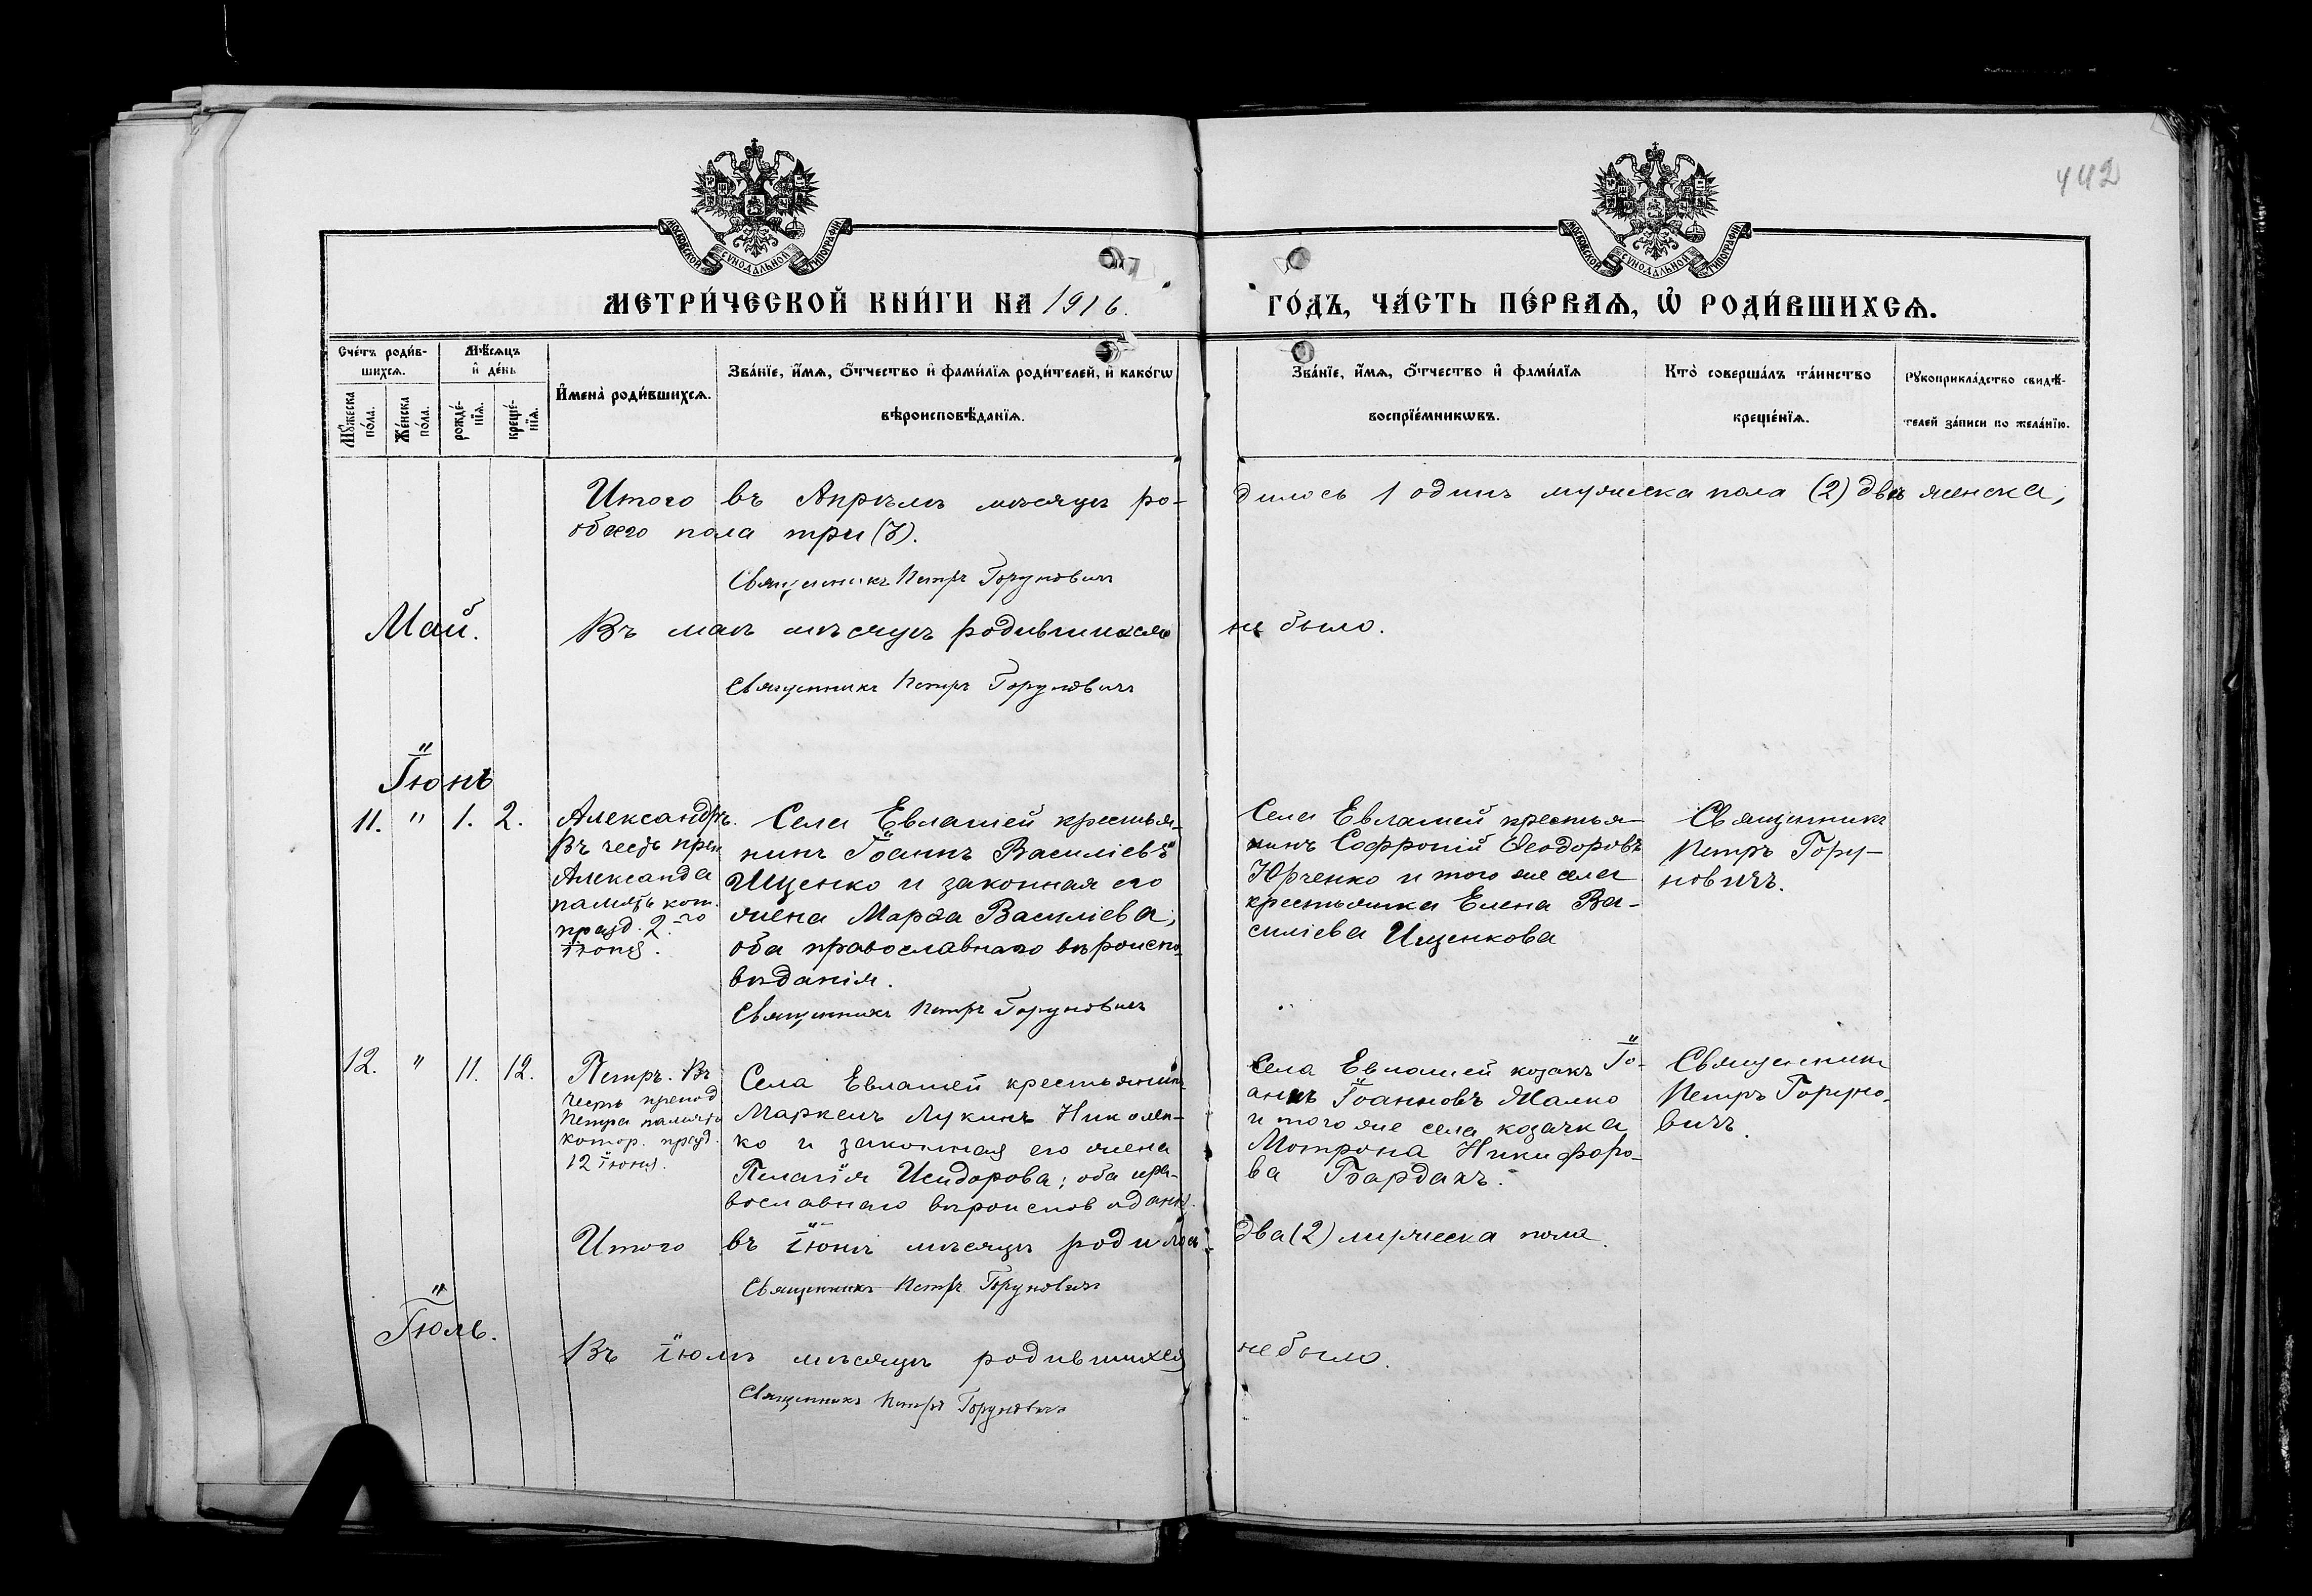 442
МОСКОВСКОЙ СѴНОДАЛЬНОЙ ТИПОГРАФІИ
МОСКОВСКОЙ СѴНОДАЛЬНОЙ ТИПОГРАФІИ
МЕТРИ́ЧЕСКОЙ КНИ́ГИ НА 1916.
ГО́ДЪ, ЧА́СТЬ ПЕ́РВАѦ, Ѡ҆ РОДИ́ВШИХСѦ.
Сче́тъ роди́в-
шихсѧ.
Мꙋ́жеска
по́ла.
Же́нска
по́ла.
Мѣ́сѧцъ
и҆ де́нь
рожде́-
нїѧ.
креще́-
нїѧ.
И҆мена̀ роди́вшихсѧ.
Зва́нїе, и҆́мѧ, ѻ҆́тчество и҆ фами́лїѧ роди́телей, и҆ како́гѡ
вѣроисповѣ́данїѧ.
Зва́нїе, и҆́мѧ, ѻ҆́тчество и҆ фами́лїѧ
воспрїе́мникѡвъ.
Кто̀ соверша́лъ та́инство
креще́нїѧ.
Рꙋкоприкла́дство свидѣ́-
телей за́писи по жела́нїю.
Итого въ Апрѣлѣ мѣсяцѣ ро-
дилось 1 одинъ мужеска пола (2) двѣ женска;
обоего пола три (3).
Священникъ Петръ Горуновичъ
Май.
Въ маѣ мѣсяцѣ родившихся
не было.
Священникъ Петръ Горуновичъ
Іюнь
11. " 1. 2.
Александръ.
Въ честь преп
Александа
память кот.
празд. 2.го
іюня.
Села Евлашей крестья-
нинъ Іоаннъ Василіевъ
Ищенко и законная его
жена Марѳа Василіева;
оба православнаго вѣроиспо-
вѣданія.
Священникъ Петръ Горуновичъ
Села Евлашей крестья-
нинъ Софроній Ѳеодоровъ
Юрченко и того же села
крестьянка Елена Ва-
силіева Ищенкова
Священникъ
Петръ Гору-
новичъ.
12. " 11. 12.
Петръ. Въ
честь препод
Петра память
котор. празд.
12 іюня.
Села Евлашей крестьянинъ
Маркелъ Лукинъ Николен-
ко и законная его жена
Пелагія Исидорова; оба пра-
вославнаго вѣроисповѣдані.
Села Евлашей козакъ Іо-
аннъ Іоанновъ Малко
и того же села козачка
Мотрона Никифоро-
ва Бардакъ.
Священникъ
Петръ Горуно-
вичъ.
Итого въ іюнѣ мѣсяцѣ родилось
два (2) мужеска пола.
Священникъ Петръ Горуновичъ
Іюль.
Въ іюлѣ мѣсяцѣ родившихся
не было.
Священникъ Петръ Горуновичъ